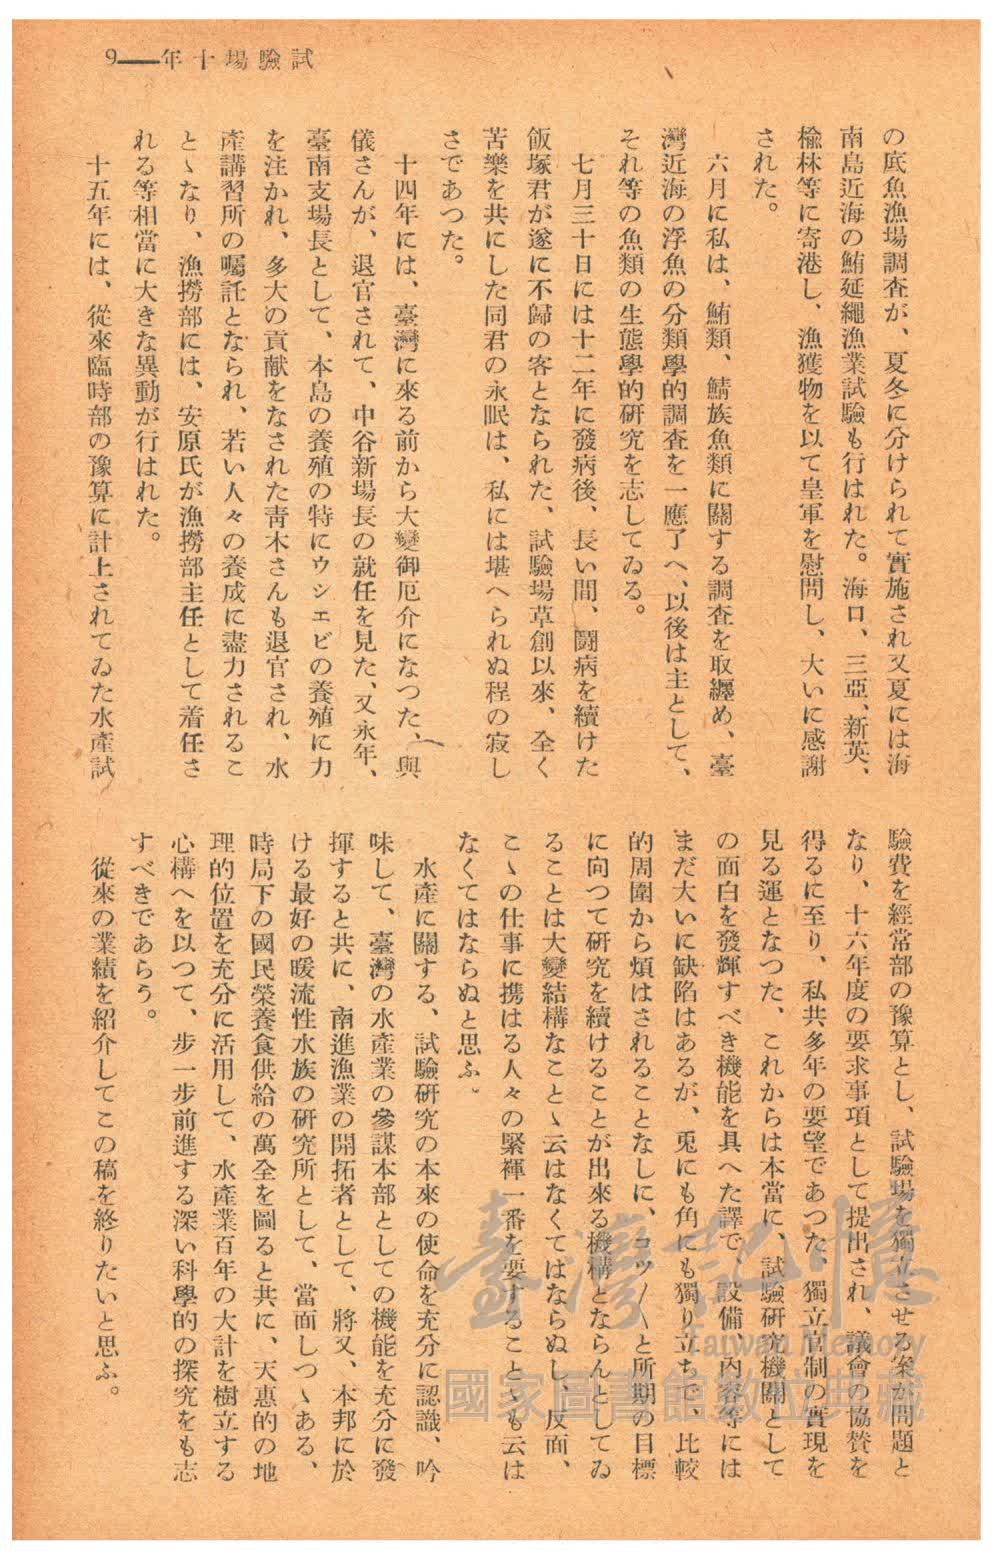 9——年十場驗試
の底魚漁場調査が、夏冬に分けられて實施され又夏には海
南島近海の鮪延繩漁業試驗も行はれた。海口、三亞、新英、
楡林等に寄港し、漁獲物を以て皇軍を慰問し、大いに感謝
された。
六月に私は、鮪類、鯖族魚類に關する調査を取纒め、臺
灣近海の浮魚の分類學的調査を一應了へ、以後は主として、
それ等の魚類の生態學的研究を志してゐる。
七月三十日には十二年に發病後、長い間、鬪病を續けた
飯塚君が遂に不歸の客となられた、試驗場草創以來、全く
苦樂を共にした同君の永眠は、私には堪へられぬ程の寂し
さであつた。
十四年には、臺灣に來る前から大變御厄介になつた、與
儀さんが、退官されて、中谷新場長の就任を見た、又永年、
臺南支場長として、本島の養殖の特にウシエビの養殖に力
を注かれ、多大の貢献をなされた靑木さんも退官され、水
產講習所の囑託となられ、若い人々の養成に盡力されるこ
とゝなり、漁撈部には、安原氏が漁撈部主任として着任さ
れる等相當に大きな異動が行はれた。
十五年には、從來臨時部の豫算に計上されてゐた水產試
驗費を經常部の豫算とし、試驗場を獨立させる案が問題と
なり、十六年度の要求事項として提出され、議會の協贊を
得るに至り、私共多年の要望であつた、獨立官制の實現を
見る運となつた、これからは本當に、試驗研究機關として
の面白を發輝すべき機能を具へた譯で、設備、內容等には
まだ大いに缺陷はあるが、兎にも角にも獨り立ちで、比較
的周圍から煩はされることなしに、コツ〳〵と所期の目標
に向つて研究を續けることが出來る機構とならんとしてゐ
ることは大變結構なことゝ云はなくてはならぬし、反面、
こゝの仕事に携はる人々の緊褌一番を要することゝも云は
なくてはならぬと思ふ。
水產に關する、試驗研究の本來の使命を充分に認識、吟
味して、臺灣の水產業の參謀本部としての機能を充分に發
揮すると共に、南進漁業の開拓者として、將又、本邦に於
ける最好の暖流性水族の研究所として、當面しつゝある、
時局下の國民榮養食供給の萬全を圖ると共に、天惠的の地
理的位置を充分に活用して、水產業百年の大計を樹立する
心構へを以つて、步一步前進する深い科學的の探究をも志
すべきであらう。
從來の業績を紹介してこの稿を終りたいと思ふ。
臺灣記憶
Taiwan Memory
國家圖書館數位典藏